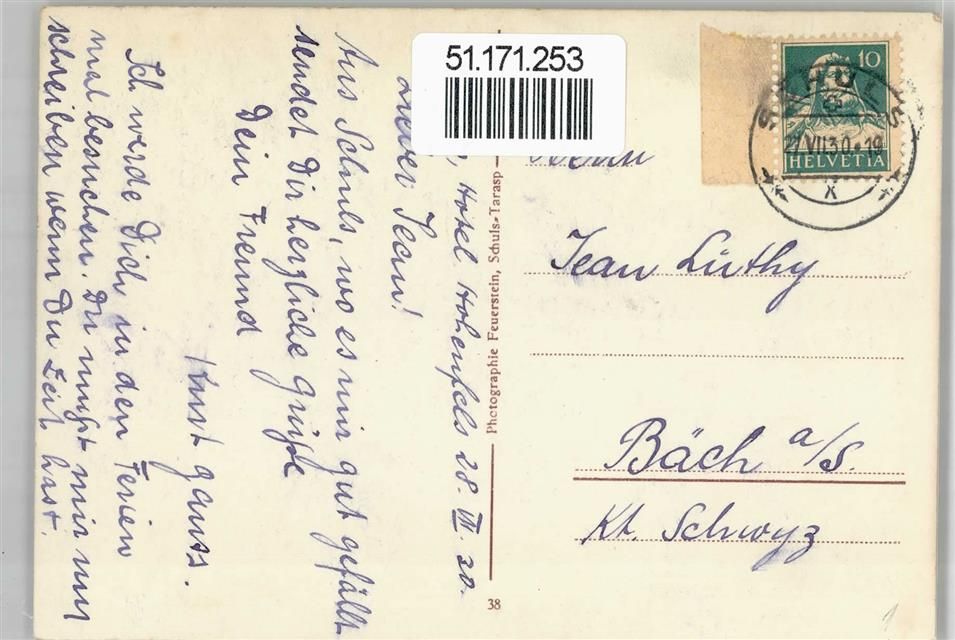 51.171.253
Hotel Hohenfels 28. VII. 30.
Lieber Jean!
Aus Schuls, wo es mir gut gefällt
sendet Dir herzliche Grüsse
Dein Freund
Ich werde Dich in den Ferien
mal besuchen. Du musst mir nur
schreiben wenn Du Zeit hast.
Photographie Feuerstein, Schuls-Tarasp
38
10
SCHULS
27.VII.30.19
X
HELVETIA
Herrn
Jean Lüthy
Bäch a/S.
Kt. Schwyz